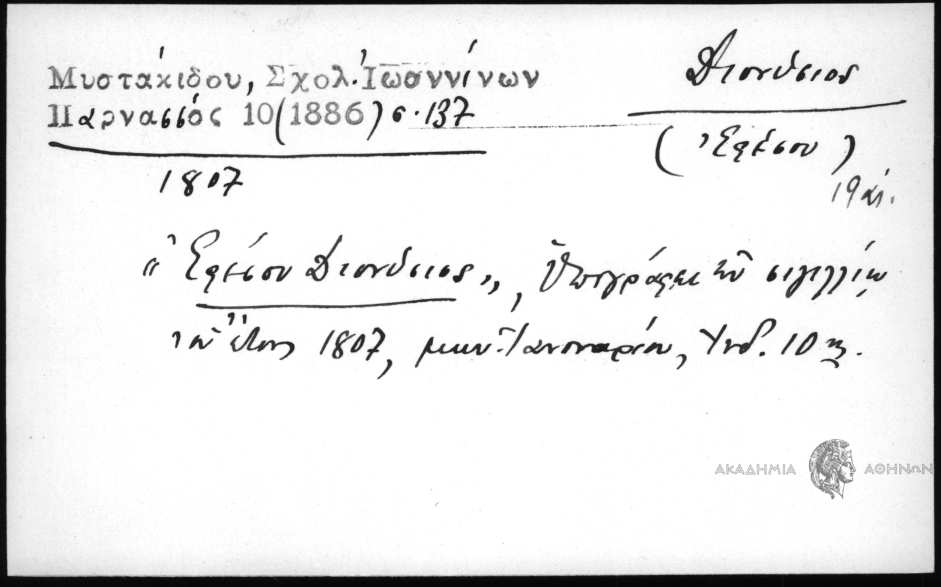 Μυστάκιδου, Σχολ. Ἰωαννίνων
Παρνασσός 10 (1886) σ. 137
1807
Διονύσιος
(Ἐφέσου)
19 αἰ.
"Ἐφέσου Διονύσιος", ὑπογράφει τῷ σιγιλλίῳ
τοῦ ἔτους 1807, μην. Ἰανουαρίου, Ἰνδ. 10ης.
ΑΚΑΔΗΜΙΑ ΑΘΗΝΩΝ